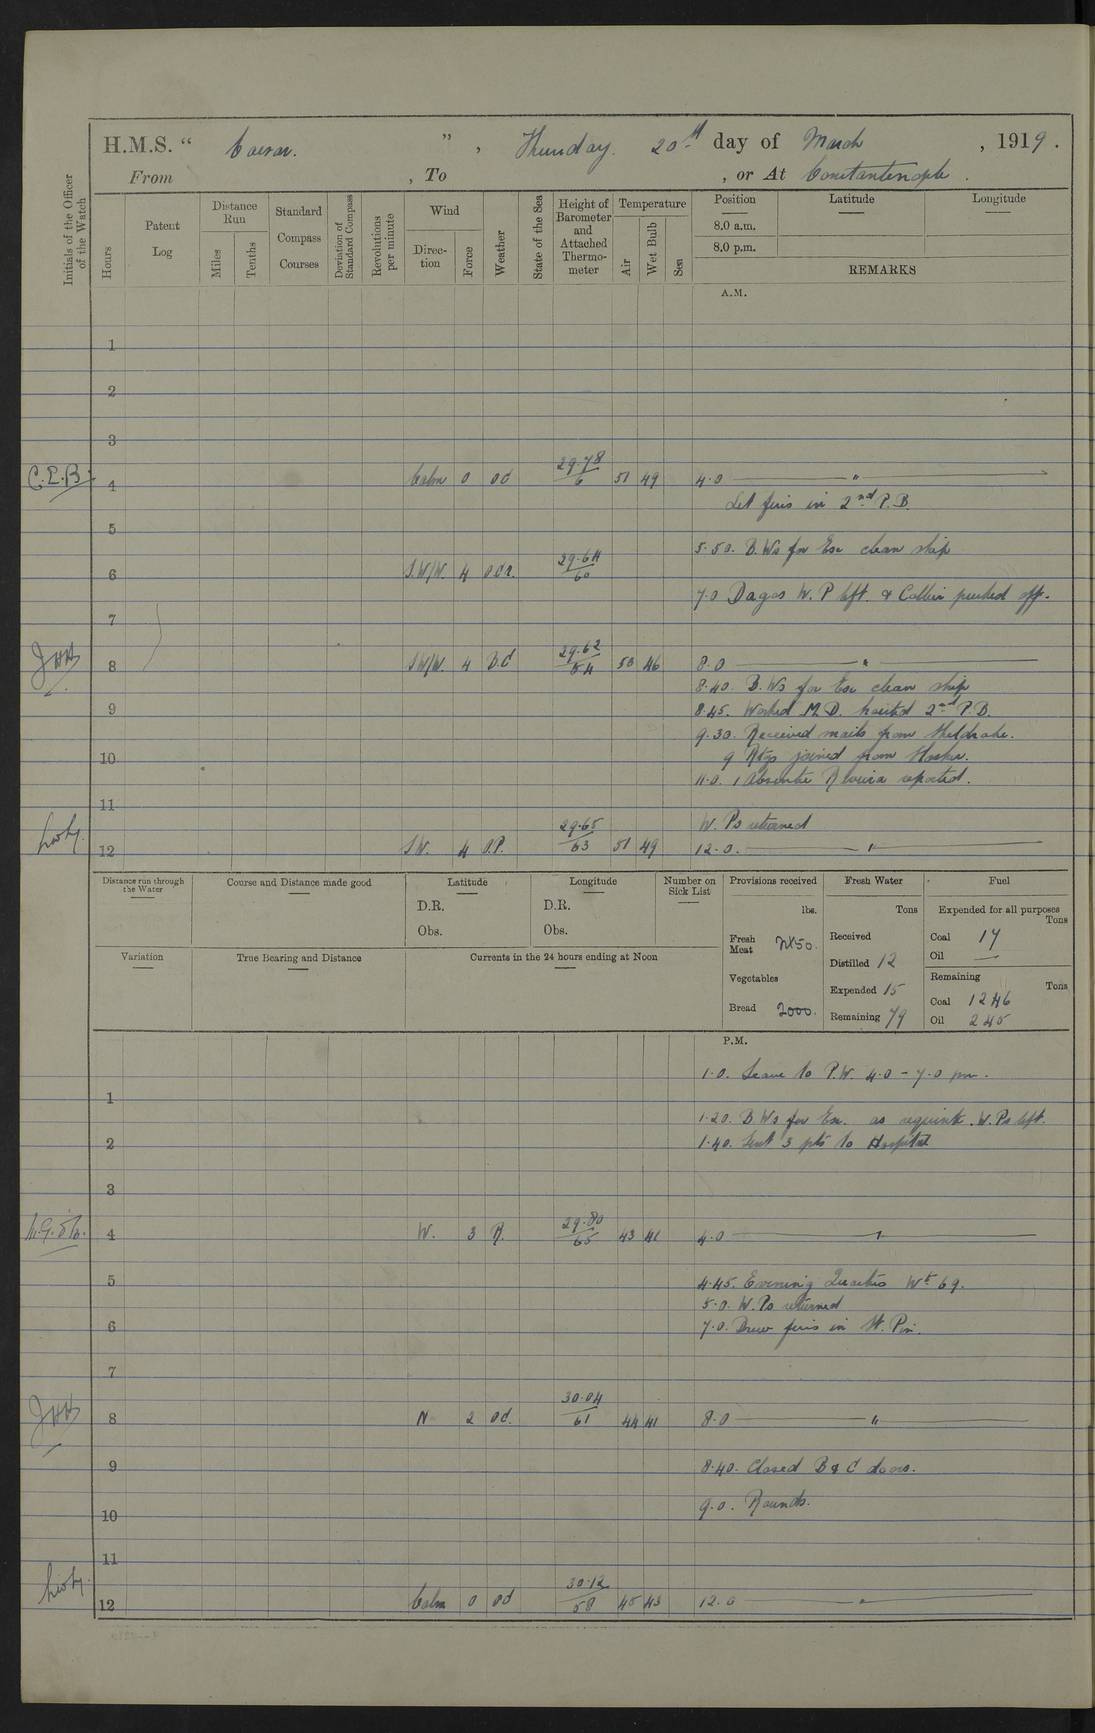 H.M.S. “ Caesar. ” , Thursday. 20th day of March , 1919 .
From , To , or At Constantinople .
Initials of the Officer of the Watch
Hours
Patent Log
Distance Run
Miles
Tenths
Standard Compass Courses
Deviation of Standard Compass
Revolutions per minute
Wind
Direction
Force
Weather
State of the Sea
Height of Barometer and Attached Thermometer
Temperature
Air
Wet Bulb
Sea
Position Latitude Longitude
8.0 a.m.
8.0 p.m.
REMARKS
A.M.
1
2
3
C.E.B. 4 Calm 0 od 29.78 6 51 49 4.0 "
Let fires in 2nd P.B.
5
5.50. B.Ws for Ex clean ship
6 S.W/W. 4 o.d.r. 29.64 60
7.0 Dagos W.P left & Collier pushed off.
7
JHH 8 SW/W. 4 B.C 29.62 54 50 46 8.0 "
8.40. B.Ws for Ex clean ship
9 8.45. Worked M.D. hoisted 2nd P.B.
9.30. Received mails from
10 9 joined from
11.0. 1 Absentee reported.
11
W. Ps returned
12 SW. 4 O.P. 29.65 63 51 49 12.0. "
Distance run through the Water
Course and Distance made good
Latitude
D.R.
Obs.
Longitude
D.R.
Obs.
Number on Sick List
Provisions received
lbs.
Fresh Meat
Vegetables
Bread 2000.
Fresh Water
Tons
Received
Distilled 12
Expended 15
Remaining 79
Fuel
Expended for all purposes
Tons
Coal 17
Oil —
Remaining
Tons
Coal 1246
Oil 245
Variation
True Bearing and Distance
Currents in the 24 hours ending at Noon
P.M.
1.0. Leave to P.W. 4.0 - 7.0 pm.
1
1.20. B Ws for Ex. as requisite. W.Ps left.
2 1.40. Sent 3 pts to Hospital
3
4 W. 3 R. 29.80 65 43 41 4.0 "
5 4.45. Evening Quarters Wt 69.
5.0. W.Ps returned
6 7.0. Drew fires in St. Pin.
7
JHH 8 N 2 od. 30.04 61 44 41 8.0 "
9 8.40. Closed B & C doors.
9.0. Rounds.
10
11
12 Calm 0 od 30.12 58 45 43 12.0 "